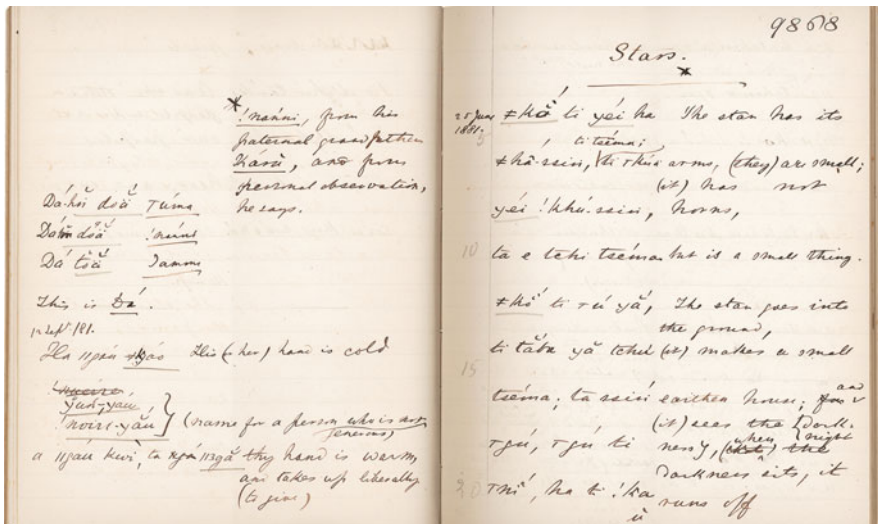 !nánni, from his
paternal grandfather
Karū, and from
personal observation,
he says.
Dá-hòì dòä Tuma
dòä !nánni
Dá Tamme
This is Dá.
12 Sept/81.
Ha ǁgáú His (or her) hand is cold
(name for a person who is not
generous)
a ǁgáú kwì, ta thy hand is warm,
and takes up liberally
(to give)
9868
Stars.
25 June
1881.
ǂKǒ́ ti yéi ha The star has its
5
ti tséma;
ǂhā-ssin, arms, (they) are small;
(it) has not
yéi !khú-ssin, horns,
10 ta e tchi tséma but is a small thing.
ǂKǒ́ ti yă, The star goes into
the ground,
ti tăba yă tchú (it) makes a small
15
tséma; ta ssin earthen house; and
(it) sees the dark-
ti ness, (when night
darkness sits, it
20 ha ti !ka runs off